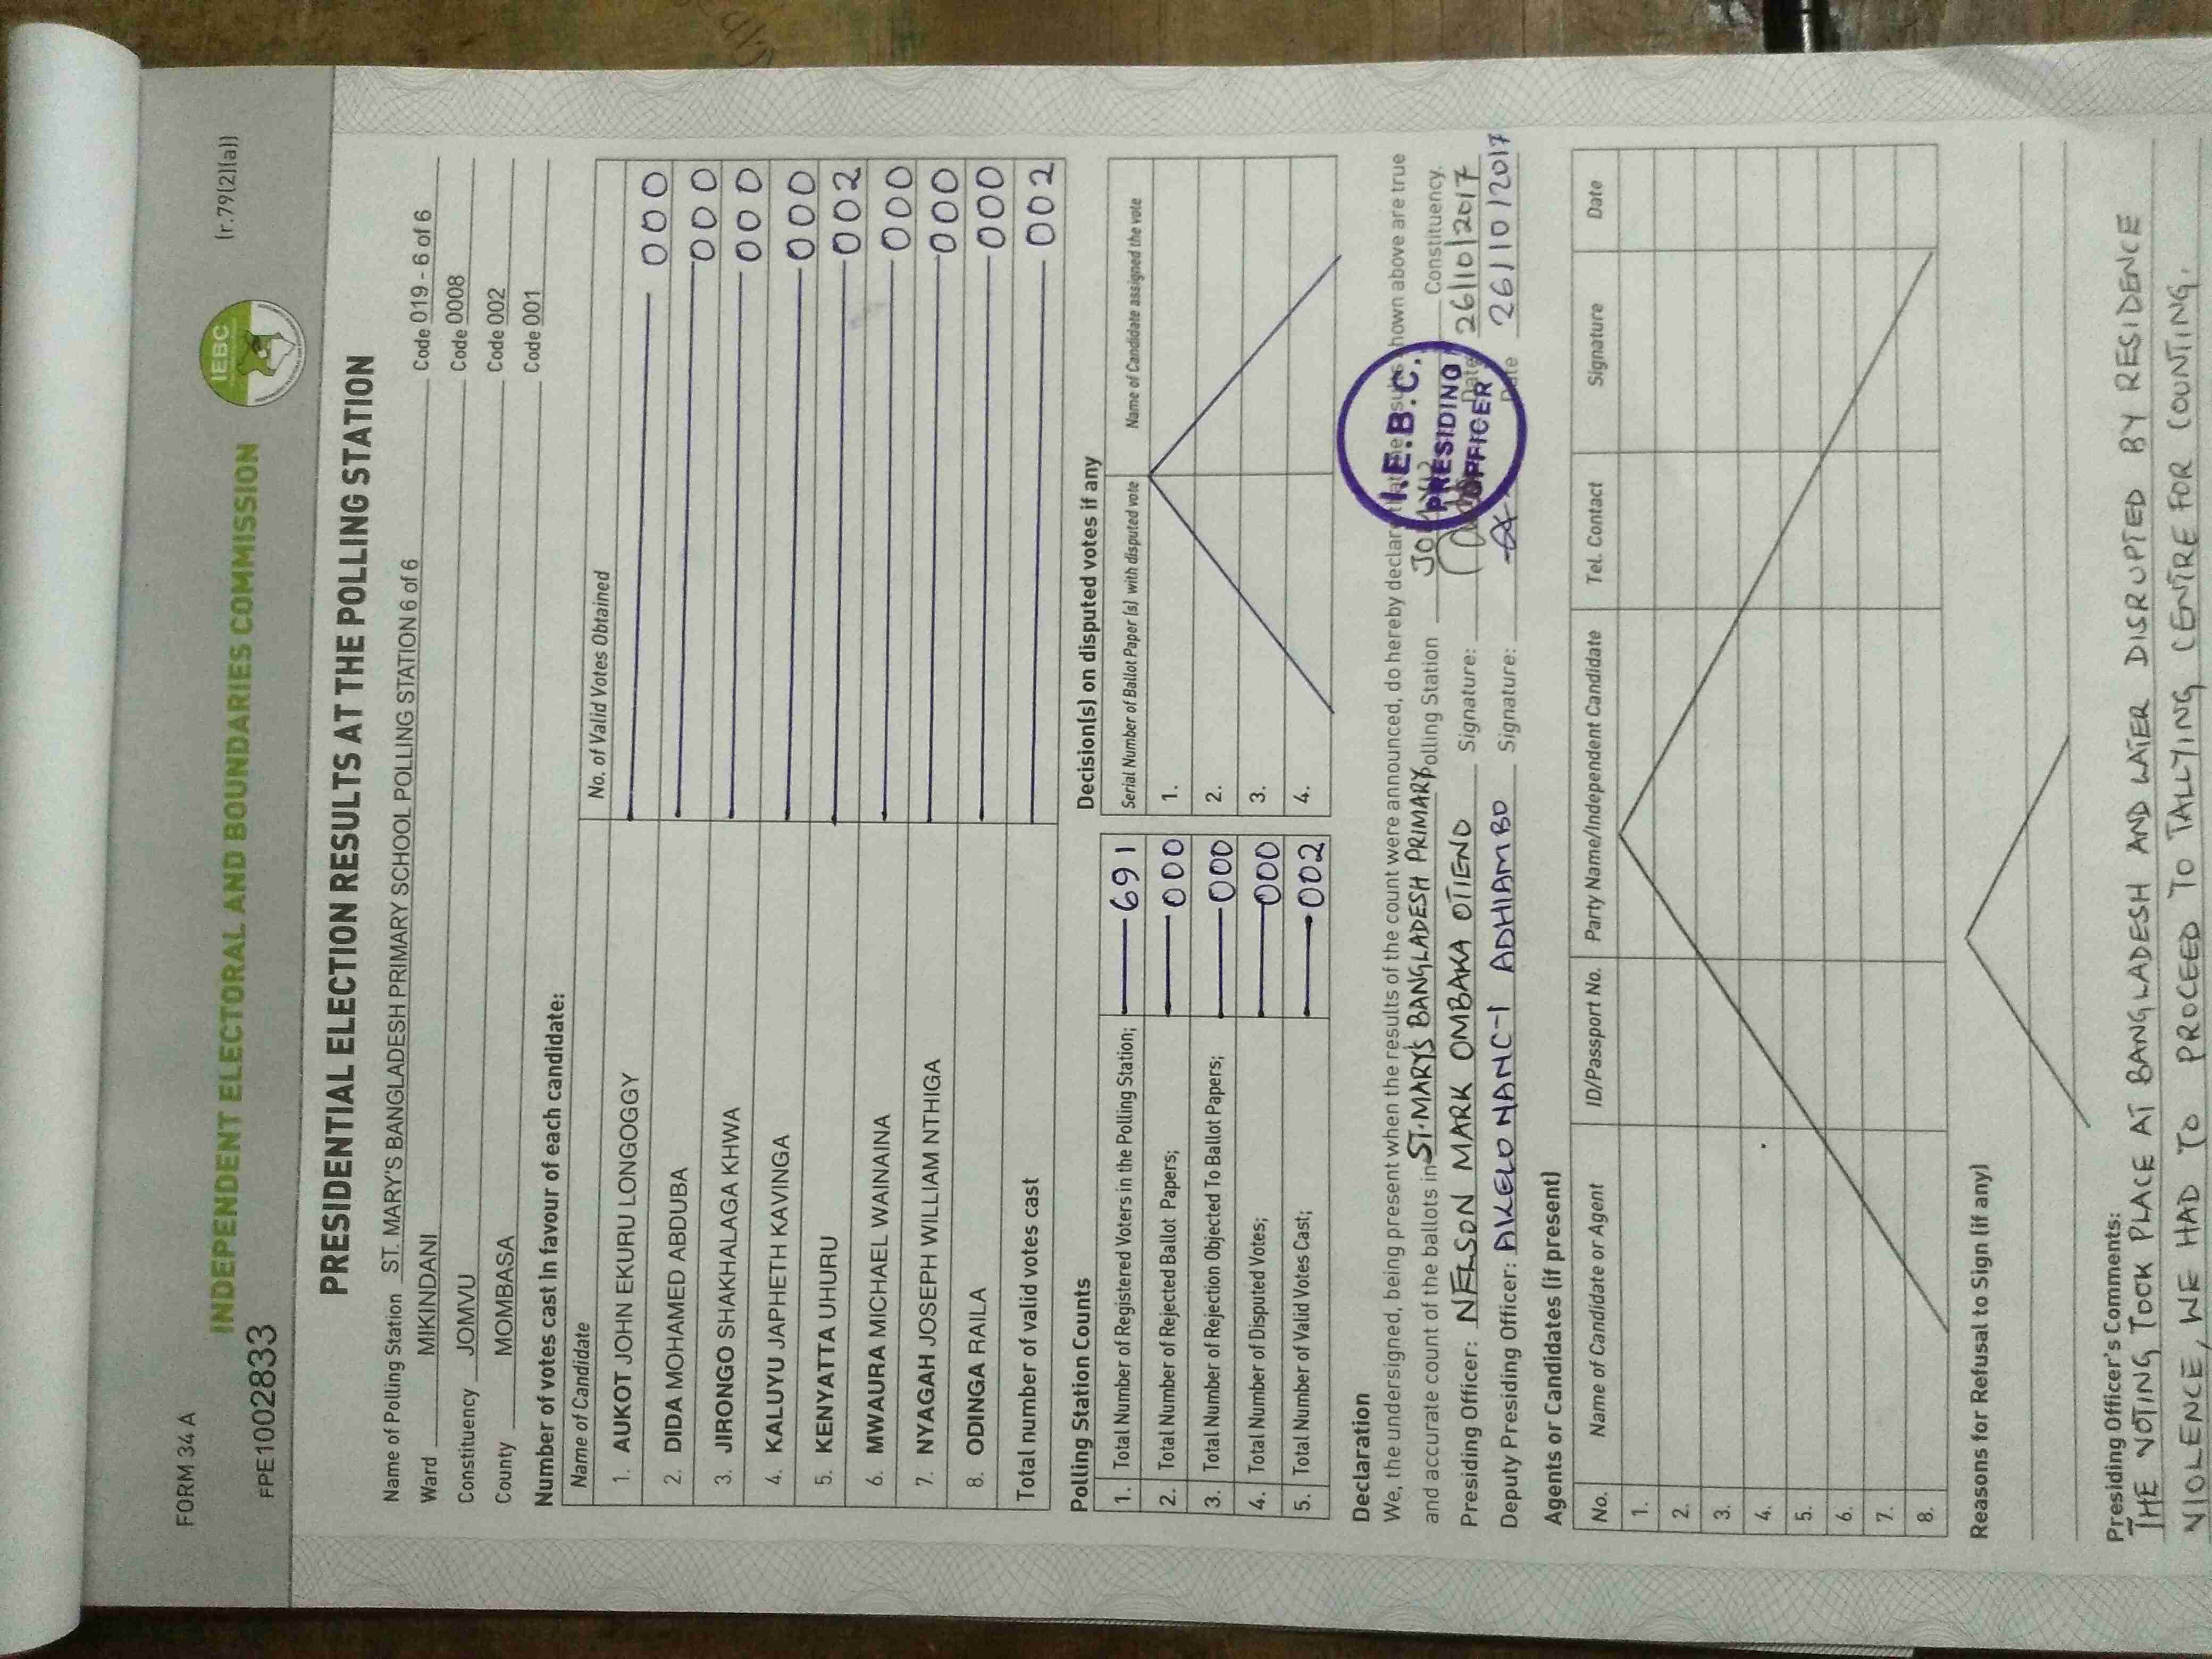 FORM 34 A
(r.79(2)(a))
IEBC
INDEPENDENT ELECTORAL AND BOUNDARIES COMMISSION
FPE1002833
PRESIDENTIAL ELECTION RESULTS AT THE POLLING STATION
Name of Polling Station ST. MARY'S BANGLADESH PRIMARY SCHOOL POLLING STATION 6 of 6 Code 019 - 6 of 6
Ward MIKINDANI Code 0008
Constituency JOMVU Code 002
County MOMBASA Code 001
Number of votes cast in favour of each candidate:
Name of Candidate No. of Valid Votes Obtained
1. AUKOT JOHN EKURU LONGOGGY 000
2. DIDA MOHAMED ABDUBA 000
3. JIRONGO SHAKHALAGA KHWA 000
4. KALUYU JAPHETH KAVINGA 000
5. KENYATTA UHURU 002
6. MWAURA MICHAEL WAINAINA 000
7. NYAGAH JOSEPH WILLIAM NTHIGA 000
8. ODINGA RAILA 000
Total number of valid votes cast 002
Polling Station Counts
1. Total Number of Registered Voters in the Polling Station; 691
2. Total Number of Rejected Ballot Papers; 000
3. Total Number of Rejection Objected To Ballot Papers; 000
4. Total Number of Disputed Votes; 000
5. Total Number of Valid Votes Cast; 002
Decision(s) on disputed votes if any
Serial Number of Ballot Paper (s) with disputed vote Name of Candidate assigned the vote
1.
2.
3.
4.
Declaration
We, the undersigned, being present when the results of the count were announced, do hereby declare shown above are true
and accurate count of the ballots in ST. MARY'S BANGLADESH PRIMARY Polling Station Constituency.
Presiding Officer: NELSON MARK OMBAKA OTIENO Signature: Date 26/10/2017
Deputy Presiding Officer: AKELO NANC-I ADHIAMBO Signature: Date 26/10/2017
I.E.B.C.
PRESIDING
OFFICER
Agents or Candidates (if present)
No. Name of Candidate or Agent ID/Passport No. Party Name/Independent Candidate Tel. Contact Signature Date
1.
2.
3.
4.
5.
6.
7.
8.
Reasons for Refusal to Sign (if any)
Presiding Officer's Comments:
THE VOTING TOOK PLACE AT BANGLADESH AND LATER DISRUPTED BY RESIDENCE
VIOLENCE, WE HAD TO PROCEED TO TALLYING CENTRE FOR COUNTING.